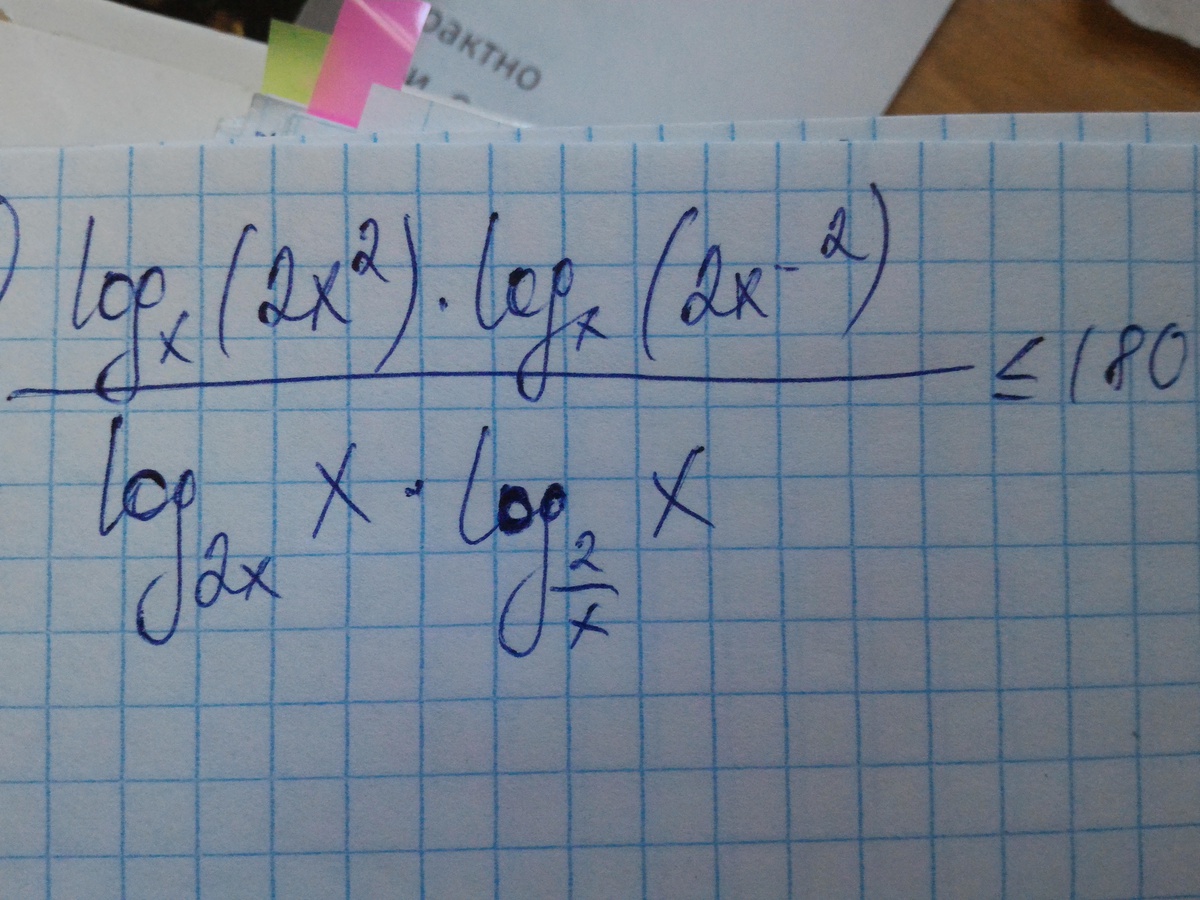 рактно
и
) log_x (2x^2) · log_x (2x^-2)
≤ 180
log_2x x · log_2/x x